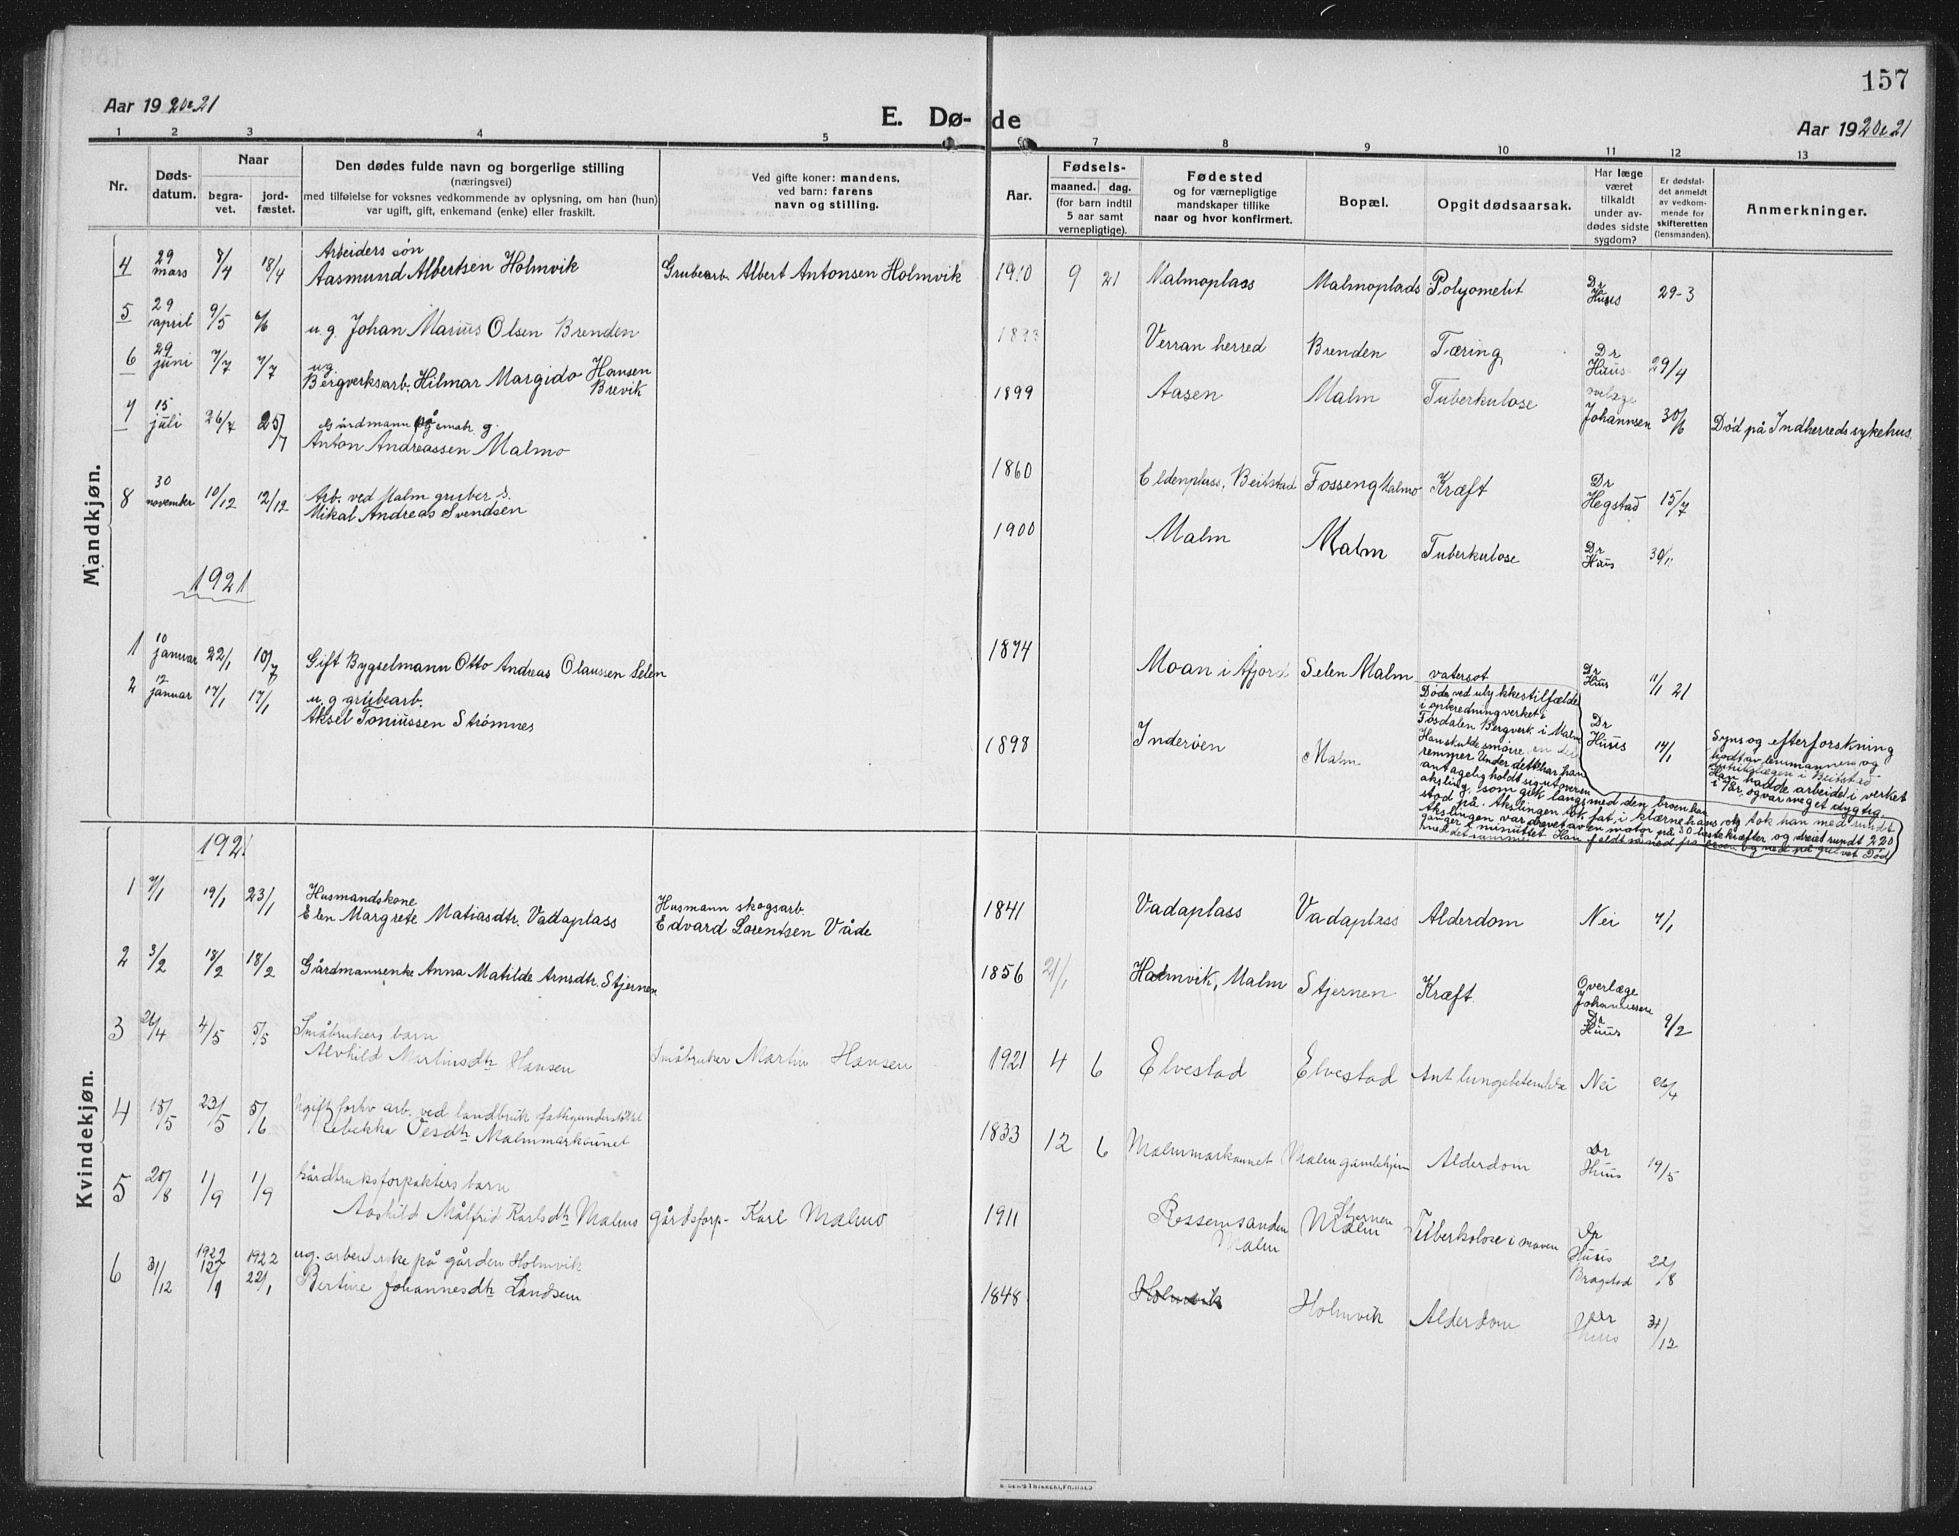 157
Aar 1920 & 21
E. Dø- de
Aar 1920 & 21
1 2 3 4 5 6 7 8 9 10 11 12 13
Nr.
Døds-
datum.
Naar
begra-
vet.
jord-
fæstet.
Den dødes fulde navn og borgerlige stilling
(næringsvei)
med tilføielse for voksnes vedkommende av oplysning, om han (hun)
var ugift, gift, enkemand (enke) eller fraskilt.
Ved gifte koner: mandens,
ved barn: farens
navn og stilling.
Aar.
Fødsels-
maaned. dag.
(for barn indtil
5 aar samt
vernepligtige).
Fødested
og for værnepligtige
mandskaper tillike
naar og hvor konfirmert.
Bopæl.
Opgit dødsaarsak.
Har læge
været
tilkaldt
under av-
dødes sidste
sygdom?
Er dødsfal-
det anmeldt
av vedkom-
mende for
skifteretten
(lensmanden).
Anmerkninger.
Mandkjøn.
4 29 mars 8/4 18/4 Arbeiders søn
Aasmund Albertsen Holmvik Grubearb Albert Antonsen Holmvik 1910 9 21 Malmoplass Malmoplads Polyomelit Dr Huus 29-3
5 29 april 9/5 6/6 u.g. Johan Marius Olsen Brenden 1893 Verran herred Brenden Tæring Dr Huus 29/4
6 29 juni 7/7 7/7 ug
Bergverksarb. Hilmar Margido Hansen
Brevik 1899 Aasen Malm Tuberkulose overlæge Johannsen 30/6 Død på Indherreds sykehus.
7 15 juli 26/7 25/7 Gårdmann på g.
Anton Andreassen Malmo 1860 Eldenplass, Beitstad Fosseng Malmo Kræft Dr Hegstad 15/7
8 30 november 10/12 12/12 Arb. ved Malm gruber s.
Mikal Andreas Svendsen 1900 Malm Malm Tuberkulose Dr Huus 30/11
1921
1 10 januar 22/1 10/7 Gift Bygselmann Otto Andreas Olaussen Selen 1874 Moan i Afjord Selen Malm vatersot Dr Huus 11/1 21
2 12 januar 17/1 17/1 u.g grubearb.
Aksel Toniussen Strømnes 1898 Inderøen Malm Dr Huus 14/1
Døde ved ulykkestilfælde
i opberedningverket i
Fosdalen Bergverk i Malm
Han skulde smøre en del
remmer Under dette har han
antagelig holdt sig utoveren
aksling, som gik langs med den broen han
stod på. Akslingen tok fat i klærne hans og tok han med rundt
Akslingen var drevet av en motor på 30 hestekræfter og dreiet rundt 220
ganger i minuttet. Han faldt så ned fra broen og ned på gulvet Død
med det samme
Syns og efterforskning
hodt av lensmannen og
distriktslægen i Beitstad
Han hadde arbeidet i verket
i 7 år, og var meget dygtig.
Kvindekjøn.
1921
1 7/1 19/1 23/1 Husmandskone
Elen Margrete Matiasdtr. Vadaplass Husmann skogsarb.
Edvard Lorentsen Våde 1841 Vadaplass Vadaplass Alderdom Nei 7/1
2 3/2 18/2 18/2 Gårdmannsenke Anna Matilde Arnsdtr. Stjernen 1856 21/1 Holmvik, Malm Stjernen Kræft Overlæge Johannessen
Dr Huus 9/2
3 26/4 4/5 5/5 Småbrukers barn
Alvhild Martinsdtr Hansen Småbruker Martin Hansen 1921 4 6 Elvestad Elvestad Ant lungebetendelse Nei 26/4
4 18/5 23/5 5/6 Ugift forhv arb. ved landbruk fattigunderstøttet
Rebekka Olesdtr Malmmarkunet 1833 12 6 Malmmarkannet Malm gamlehjem Alderdom Dr Huus 19/5
5 20/8 1/9 1/9 Gårdbruksforpakters barn
Aashild Målfrid Karlsdtr Malmo gårdsforp- Karl Malmo 1911 Ressemsanden
Malm Stjernen
Malm Tuberkulose i maven Dr Huus
Bragstad 22/8
6 31/12 1922 12/1 1922 22/1 ug. arbeiderske på gården Holmvik
Bertine Johannesdtr Landsem 1848 Holmvik Holmvik Alderdom Dr Huus 31/12